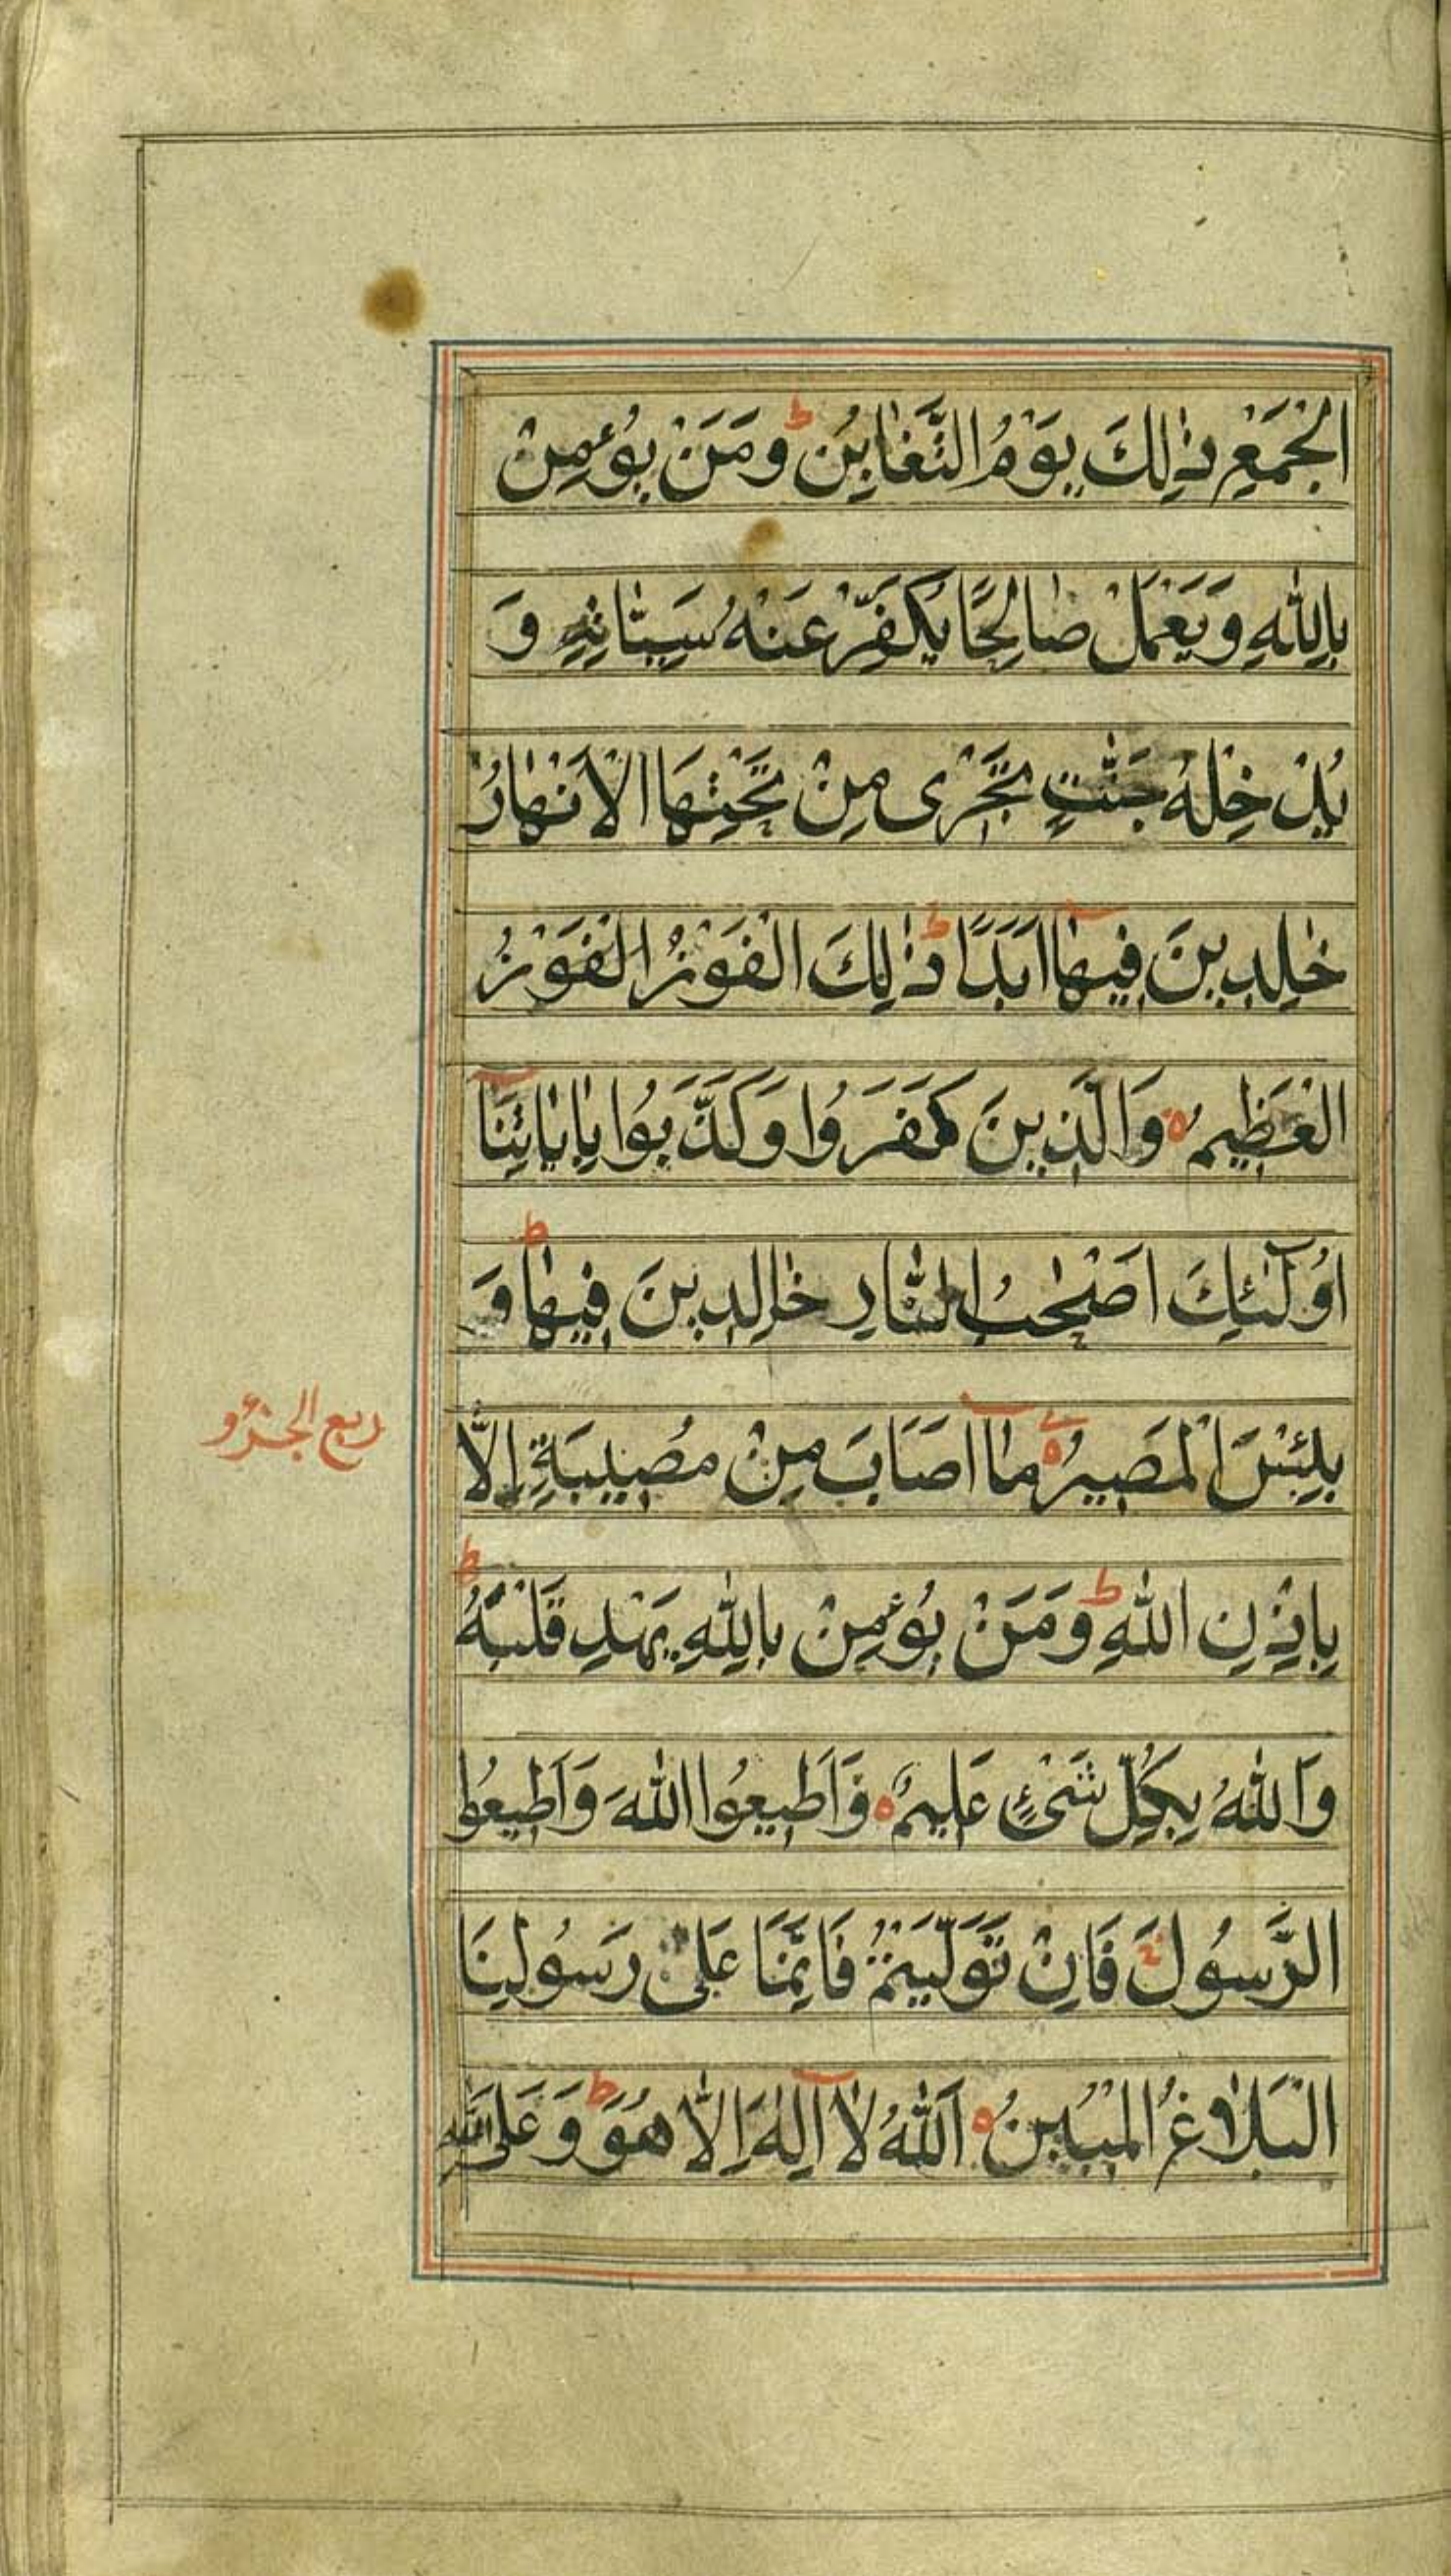 الْجَمْعِ ذٰلِكَ يَوْمُ التَّغٰابُنِ ط وَمَنْ يُؤْمِنْ
بِاللّٰهِ وَيَعْمَلْ صٰالِحًا يُكَفِّرْ عَنْهُ سَيِّئٰاتِهِ وَ
يُدْخِلْهُ جَنّٰتٍ تَجْرٰى مِنْ تَحْتِهَا الْاَنْهٰارُ
خٰلِدِينَ فِيهٰآ اَبَدًا ط ذٰلِكَ الْفَوْزُ الْفَوْزُ
الْعَظِيمُ ه وَالَّذِينَ كَفَرُوا وَكَذَّبُوا بِاٰيٰاتِنَآ
اُولٰٓئِكَ اَصْحٰبُ النّٰارِ خٰالِدِينَ فِيهٰا ط وَ
بِئْسَ الْمَصِيرُ ه مٰآ اَصَابَ مِنْ مُصِيبَةٍ اِلَّا
ربع الجزؤ
بِاِذْنِ اللّٰهِ ط وَمَنْ يُؤْمِنْ بِاللّٰهِ يَهْدِ قَلْبَهُ ط
وَاللّٰهُ بِكُلِّ شَىْءٍ عَلِيمٌ ه وَاَطِيعُوا اللّٰهَ وَاَطِيعُوا
الرَّسُولَ ج فَاِنْ تَوَلَّيْتُمْ فَاِنَّمَا عَلىٰ رَسُولِنَا
الْبَلٰاغُ الْمُبِينُ ه اَللّٰهُ لٰآ اِلٰهَ اِلّٰا هُوَ ط وَعَلَى اللّٰهِ